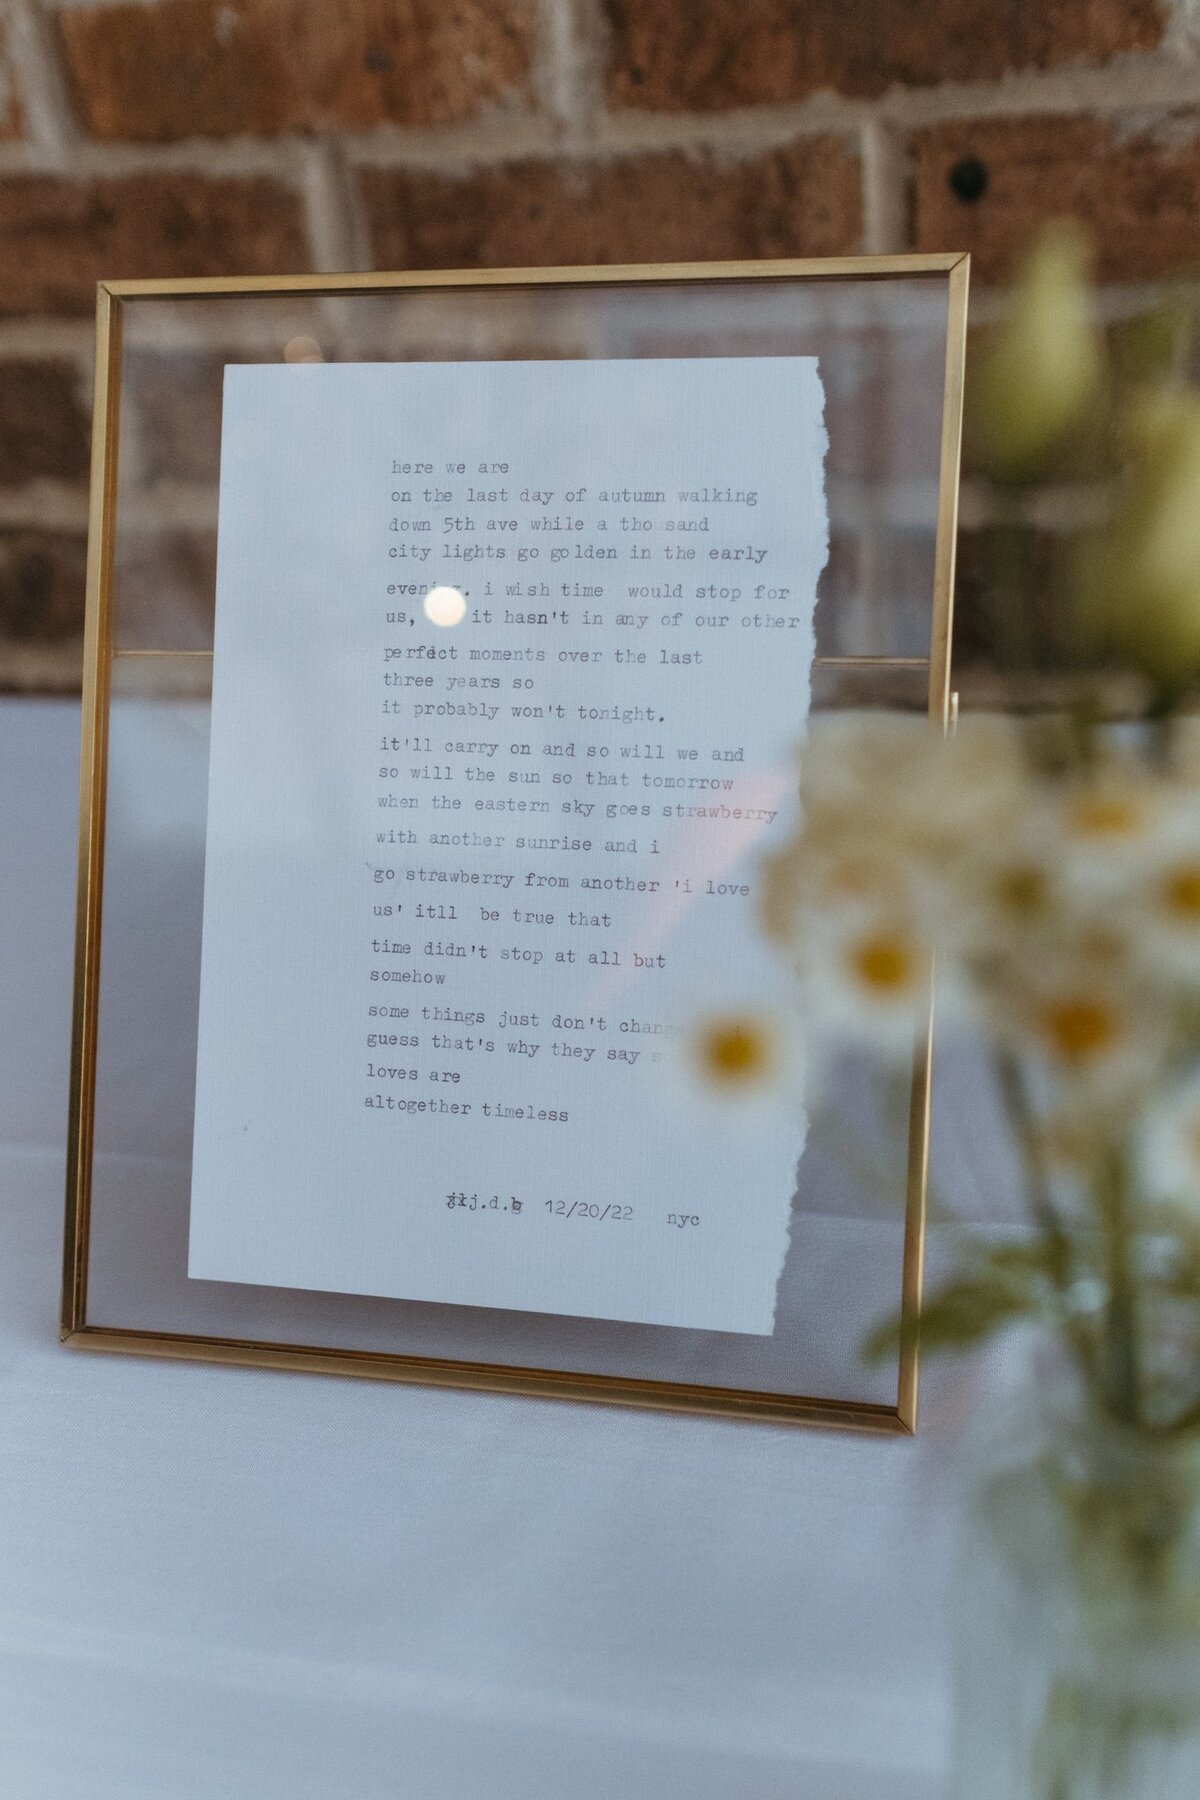 here we are
on the last day of autumn walking
down 5th ave while a tho sand
city lights go golden in the early
i wish time would stop for
us, it hasn't in any of our other
perfect moments over the last
three years so
it probably won't tonight.
it'll carry on and so will we and
so will the sun so that tomorrow
when the eastern sky goes strawberry
with another sunrise and i
go strawberry from another 'i love
us' itll be true that
time didn't stop at all but
somehow
some things just don't
guess that's why they say
loves are
altogether timeless
j.d.b 12/20/22 nyc